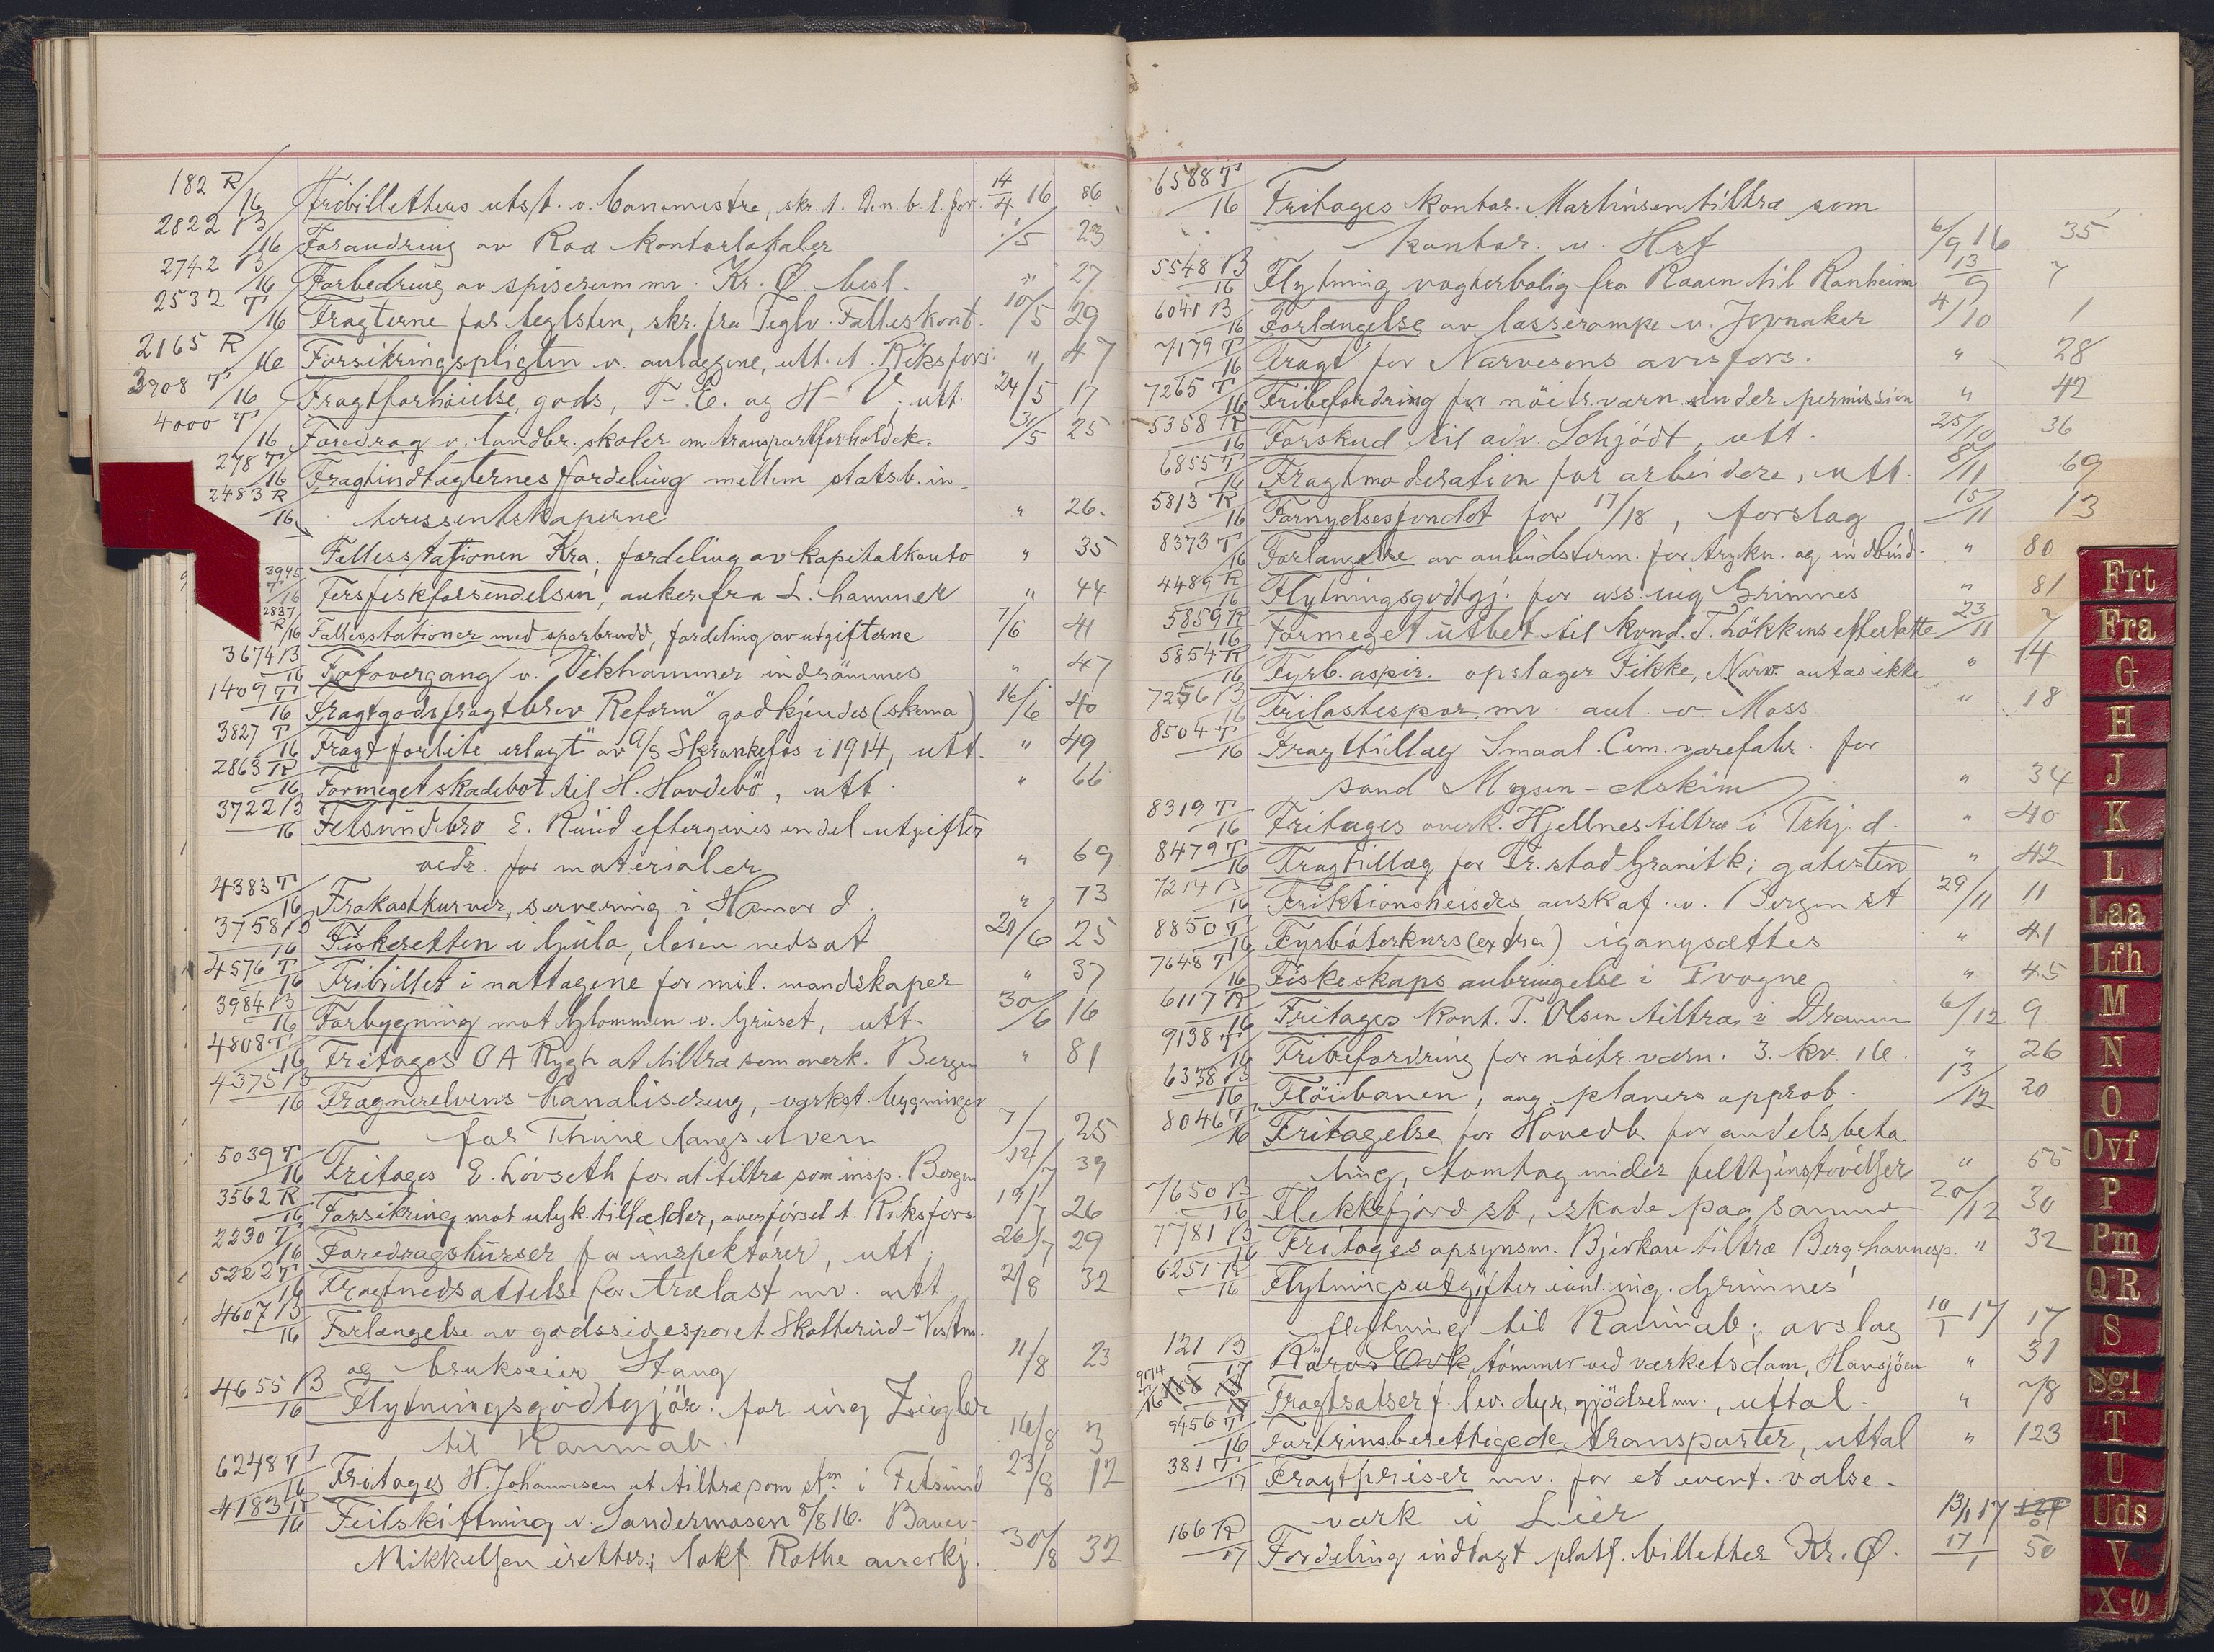 182 R/16 Fribilletters utst. v. banemestre, skr. t. Den. b. t. for. 14/4 16 86
2822 B/16 Forandring av Roa kontorlokaler 1/5 23
2742 B/16 Forbedring av spiserum mv. Kr. Ø. besl. " 27
2532 T/16 Fragterne for teglsten, skr. fra Teglv. Felleskont. 10/5 29
2165 R/16 Forsikringspligten v. anlæggene, utt. t. Riksfors. " 47
3908 T/16 Fragtforhöielse, gods, T-E. og H-V, utt. 24/5 17
4000 T/16 Foredrag v. landbr. skoler om transportforhold ek. 31/5 25
278 T/16 Fragtindtægternes fordeling mellem statsb. in-
2483 R/16 teressentskaperne " 26.
Fellesstationen Kra, fordeling av kapitalkonto " 35
3945 T/16 Ferskfiskforsendelsen, anker fra L. hammer " 44
2837 R/16 Fællesstationer med sporbrudd, fordeling av utgifterne 7/6 41
3674 B/16 Fotovergang v. Vikhammer indrömmes " 47
1409 T/16 Fragtgodsfragtbrev "Reform" godkjendes (skema) 16/6 40
3827 T/16 Fragt forlite erlagt av A/S Skrankefos i 1914, utt. " 49
2863 R/16 Formeget skadebot til H. Hovdebö, utt. " 66
3722 B/16 Fetsund bro E. Ruud eftergives endel utgifter
vedr. for materialer " 69
4383 T/16 Frokostkurver, servering i Hamar d. " 73
3758 B/16 Fiskeretten i Gula, leien nedsat 21/6 25
4576 T/16 Fribillet i nattogene for mil. mandskaper " 37
3984 B/16 Forbygning mot Glommen v. Grüset, utt. 30/6 16
4808 T/16 Fritages O A Rygh at tiltræ som overk. Bergen " 81
4375 B/16 Frognerelvens Kanalisering, verkst. bygninger
for Thune langs elven 7/7 25
5039 T/16 Fritages E. Lövseth for at tiltræ som insp. Bergen 12/7 39
3562 R/16 Forsikring mot ulyk. tilfælder, overförsel t. Riksfors. 19/7 26
2230 T/16 Foredragskurser for inspektörer, utt. 26/7 29
5222 T/16 Fragtnedsættelse for trælast mv. utt. 2/8 32
4607 B/16 Forlængelse av godssidesporet Skotterud - Vestm.
og brukseier Stang 11/8 23
4655 B/16 Flytningsgodtgjör. for ing Ziegler
til Ranmab. 16/8 3
6248 T/16 Fritages H. Johannesen at tiltræ som stm i Fetsund 23/8 12
4183 R/16 Feilskiftning v. Sandermosen 8/8 16. Banev.
Mikkelsen irettes.; lokf. Rothe anerkj. 30/8 32
6588 T/16 Fritages kontor. Martinsen tiltræ som
kontor. u. Hst 6/9 16 35
5548 B/16 Flytning vogterbolig fra Raaen til Ranheim 13/9 7
6041 B/16 Forlængelse av lasserampe v. Jevnaker 4/10 1
7179 T/16 Fragt for Narvesens avisfors. " 28
7265 T/16 Fribefordring for nöitr. værn under permission " 42
5358 R/16 Forskud til adv. Schjödt, utt. 25/10 36
6855 T/16 Fragtmoderation for arbeidere, utt. 8/11 69
5813 R/16 Fornyelsesfondet for 17/18, forslag 15/11 13
8373 T/16 Forlængelse av anbudsterm. for trykn. og indbind. " 80
4489 R/16 Flytningsgodtgj. for ass. ing Grimnes " 81
5859 R/16 Formeget utbet. til kond. T. Lökkens efterlatte 23/11 7
5854 R/16 Fyrb. aspir. opslager Fikke, Narv. antas ikke " 14
7256 B/16 Frilastespor mv. anl. v. Moss " 18
8504 T/16 Fragttillæg Smaal. Cem. varefabr. for
sand Mysen - Askim " 34
8319 T/16 Fritages overk. Hjellnes tiltræ i Trhj. d. " 40
8479 T/16 Fragttillæg for Fr.stad Granitk; gatesten " 42
7214 B/16 Friktionsheises anskaf. v. Bergen st 29/11 11
8850 T/16 Fyrböterkurs (extra) igangsættes " 41
7648 T/16 Fiskeskaps anbringelse i F vogne " 45
6117 R/16 Fritages kont. T. Olsen tiltræ i Dramm 6/12 9
9138 T/16 Fribefordring for nöitr. værn. 3. kv. 16. " 26
6338 B/16 Flöibanen, ang. planers approb. 13/12 20
8046 T/16 Fritagelse for Hovedb. for andelsbeta
ling, tomtog under felttjenstövelser " 55
7650 B/16 Flekkefjord st, skade paa samme 20/12 30
7781 B/16 Fritages opsynsm. Bjerkan tiltræ Berg-havnesp. " 32
6251 R/16 Flytningsutgifter ianl. ing. Grimnes'
flytning til Ranmab; avslag 10/1 17 17
121 B/17 Röros Verk, tömmer ved værkets dam, Hansjöen " 31
9174 T/16 Fragtsatser f. lev. dyr, gjödsel mv., uttal. " 78
9456 T/16 Fortrinsberettigede transporter, uttal " 123
381 T/17 Fragtpriser mv. for et event. valse-
værk i Lier 13/1 17
166 R/17 Fordeling indtægt platf. billetter Kr. Ø. 17/1 50
Frt
Fra
G
H
J
K
L
Laa
Lfh
M
N
O
Ovf
P
Pm
QR
S
Sgl
T
U
Uds
V
X-Ø